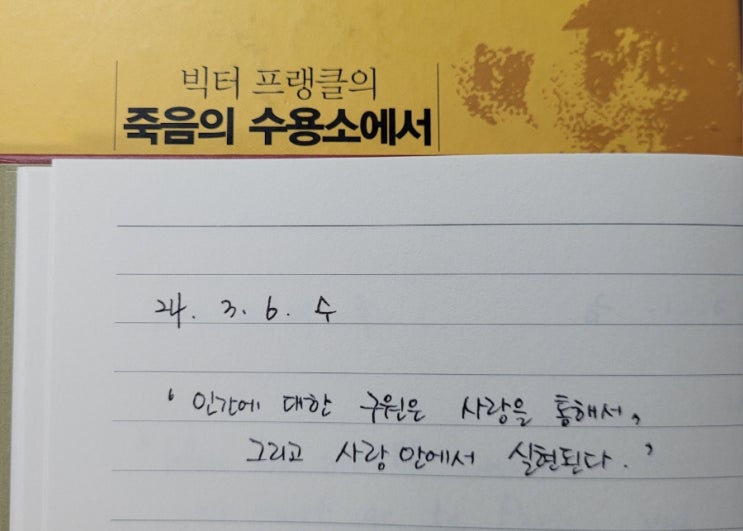 빅터 프랭클의
죽음의 수용소에서
24. 3. 6. 수
' 인간에 대한 구원은 사랑을 통해서,
그리고 사랑 안에서 실현된다. '